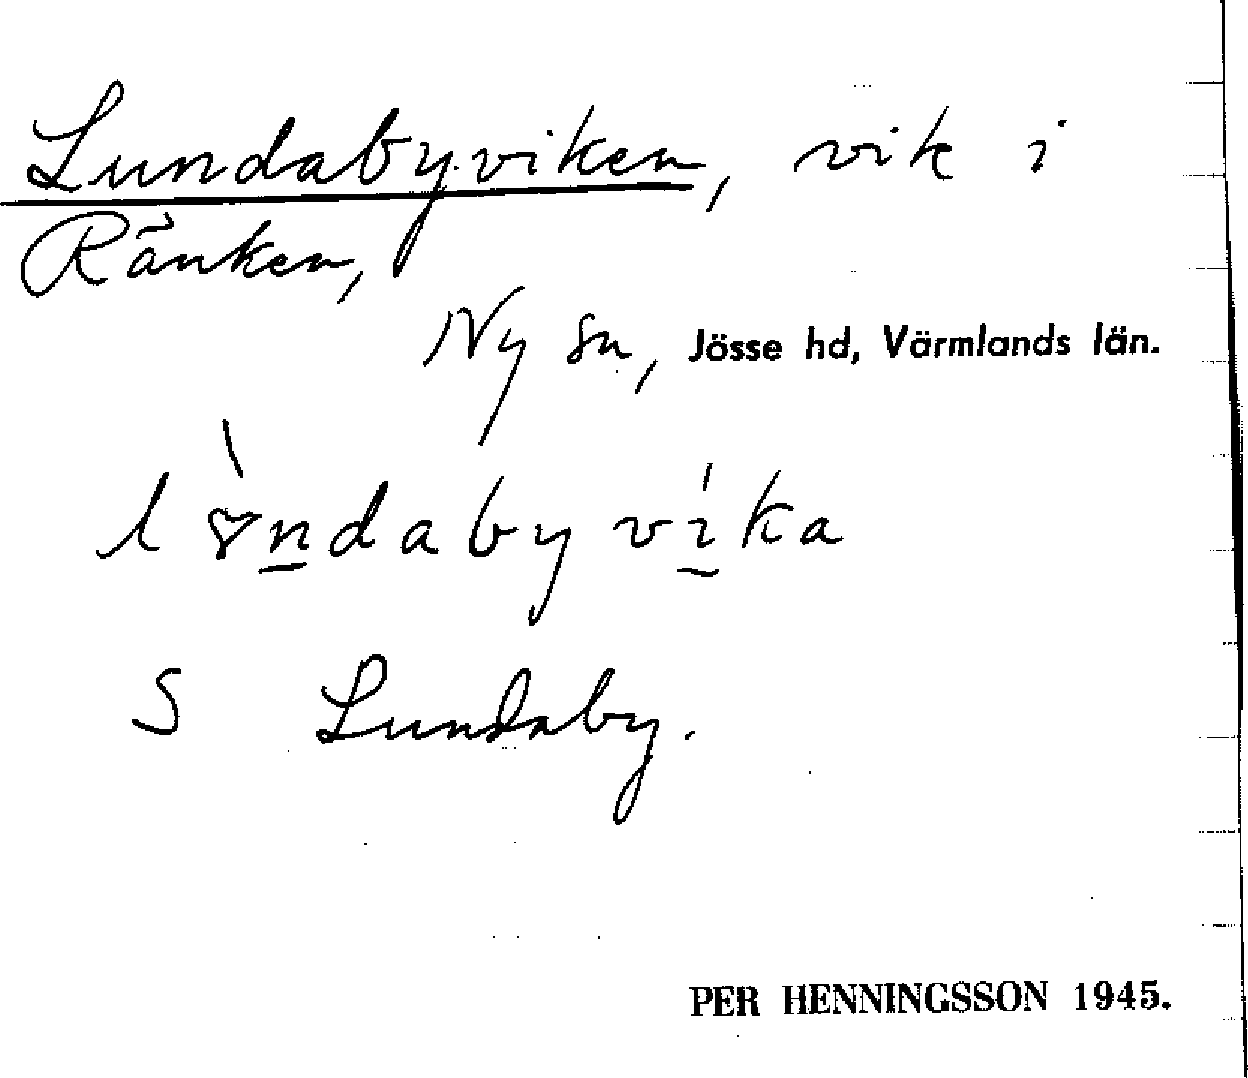 Lundabyviken, vik i
Ränken,
Ny sn, Jösse hd, Värmlands län.
lundabyvika
S Lundaby.
PER HENNINGSSON 1945.